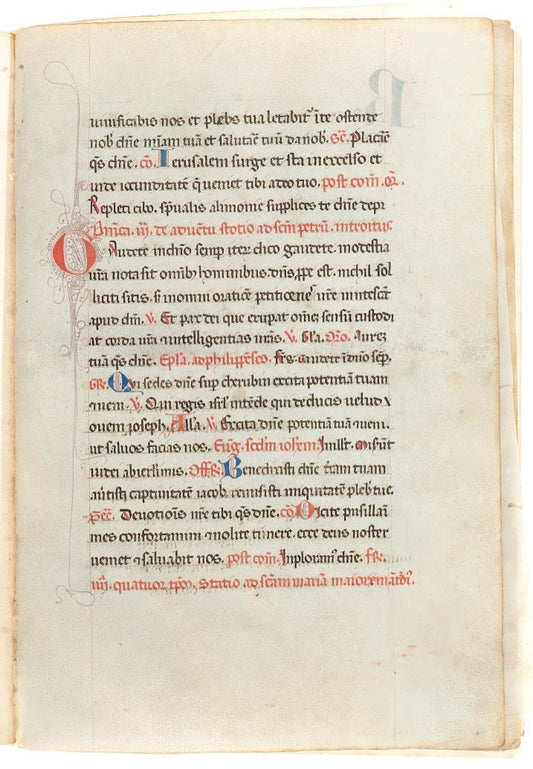 uiuificabis nos et plebs tua letabit' ĩ te ostende
nob̃ dñe mĩam tuã et salutarẽ tuũ da nob̃. Sc̃. Placare
q̃s dñe. cõ. Ierusalem surge et sta in excelso et
uide iocunditatẽ que uenet tibi a deo tuo. post com̃. or̃.
Repleti cibo. sp̃ualis alimonie supplices te dñe depr̃
Dñica. iij. de aduẽtu statio ad sc̃m petrũ. introitus.
Gaudete in dñio semp iter̃ dico gaudete. modestia
ur̃a nota sit omib; hominibus. dñs ꝓpe est. nichil sol
liciti sitis. s; in omni oratiõe petitiones ur̃e innotescãt
apud dm̃. V. Et pax dei que exupat omẽ sensũ custodi
at corda ur̃a ⁊ intelligentias ur̃as. V. Gl̃a. Oro. Aurez
tuã q̃s dñe. Ep̃la. ad philippẽses. Frs̃. Gaudete ĩ dño sẽp.
Gr̃. Qui sedes dñe sup cherubin excita potentiã tuam
⁊ ueni. V. Qui regis isrl̃ intẽde qui deducis uelud
ouem ioseph. All̃a. V. Excita dñe potentiã tuã ⁊ ueni.
ut saluos facias nos. Eug̃. sc̃dm ioh̃em. In illt̃. miserũt
iudei ab ierl̃imis. Off̃r̃. Benedixisti dñe t̃ram tuam
auertisti captiuitatẽ iacob. remisisti iniquitatẽ pleb' tue.
Sec̃. Deuotiois nr̃e tibi q̃s dñe. cõ. Dicite pusillan̄i
mes confortamini ⁊ nolite timere. ecce deus noster
ueniet ⁊ saluabit nos. post com̃. Inploram' dñe. Fr̃.
iiij. quatuor tp̃or̃. statio ad sc̃am mariã maiorem.